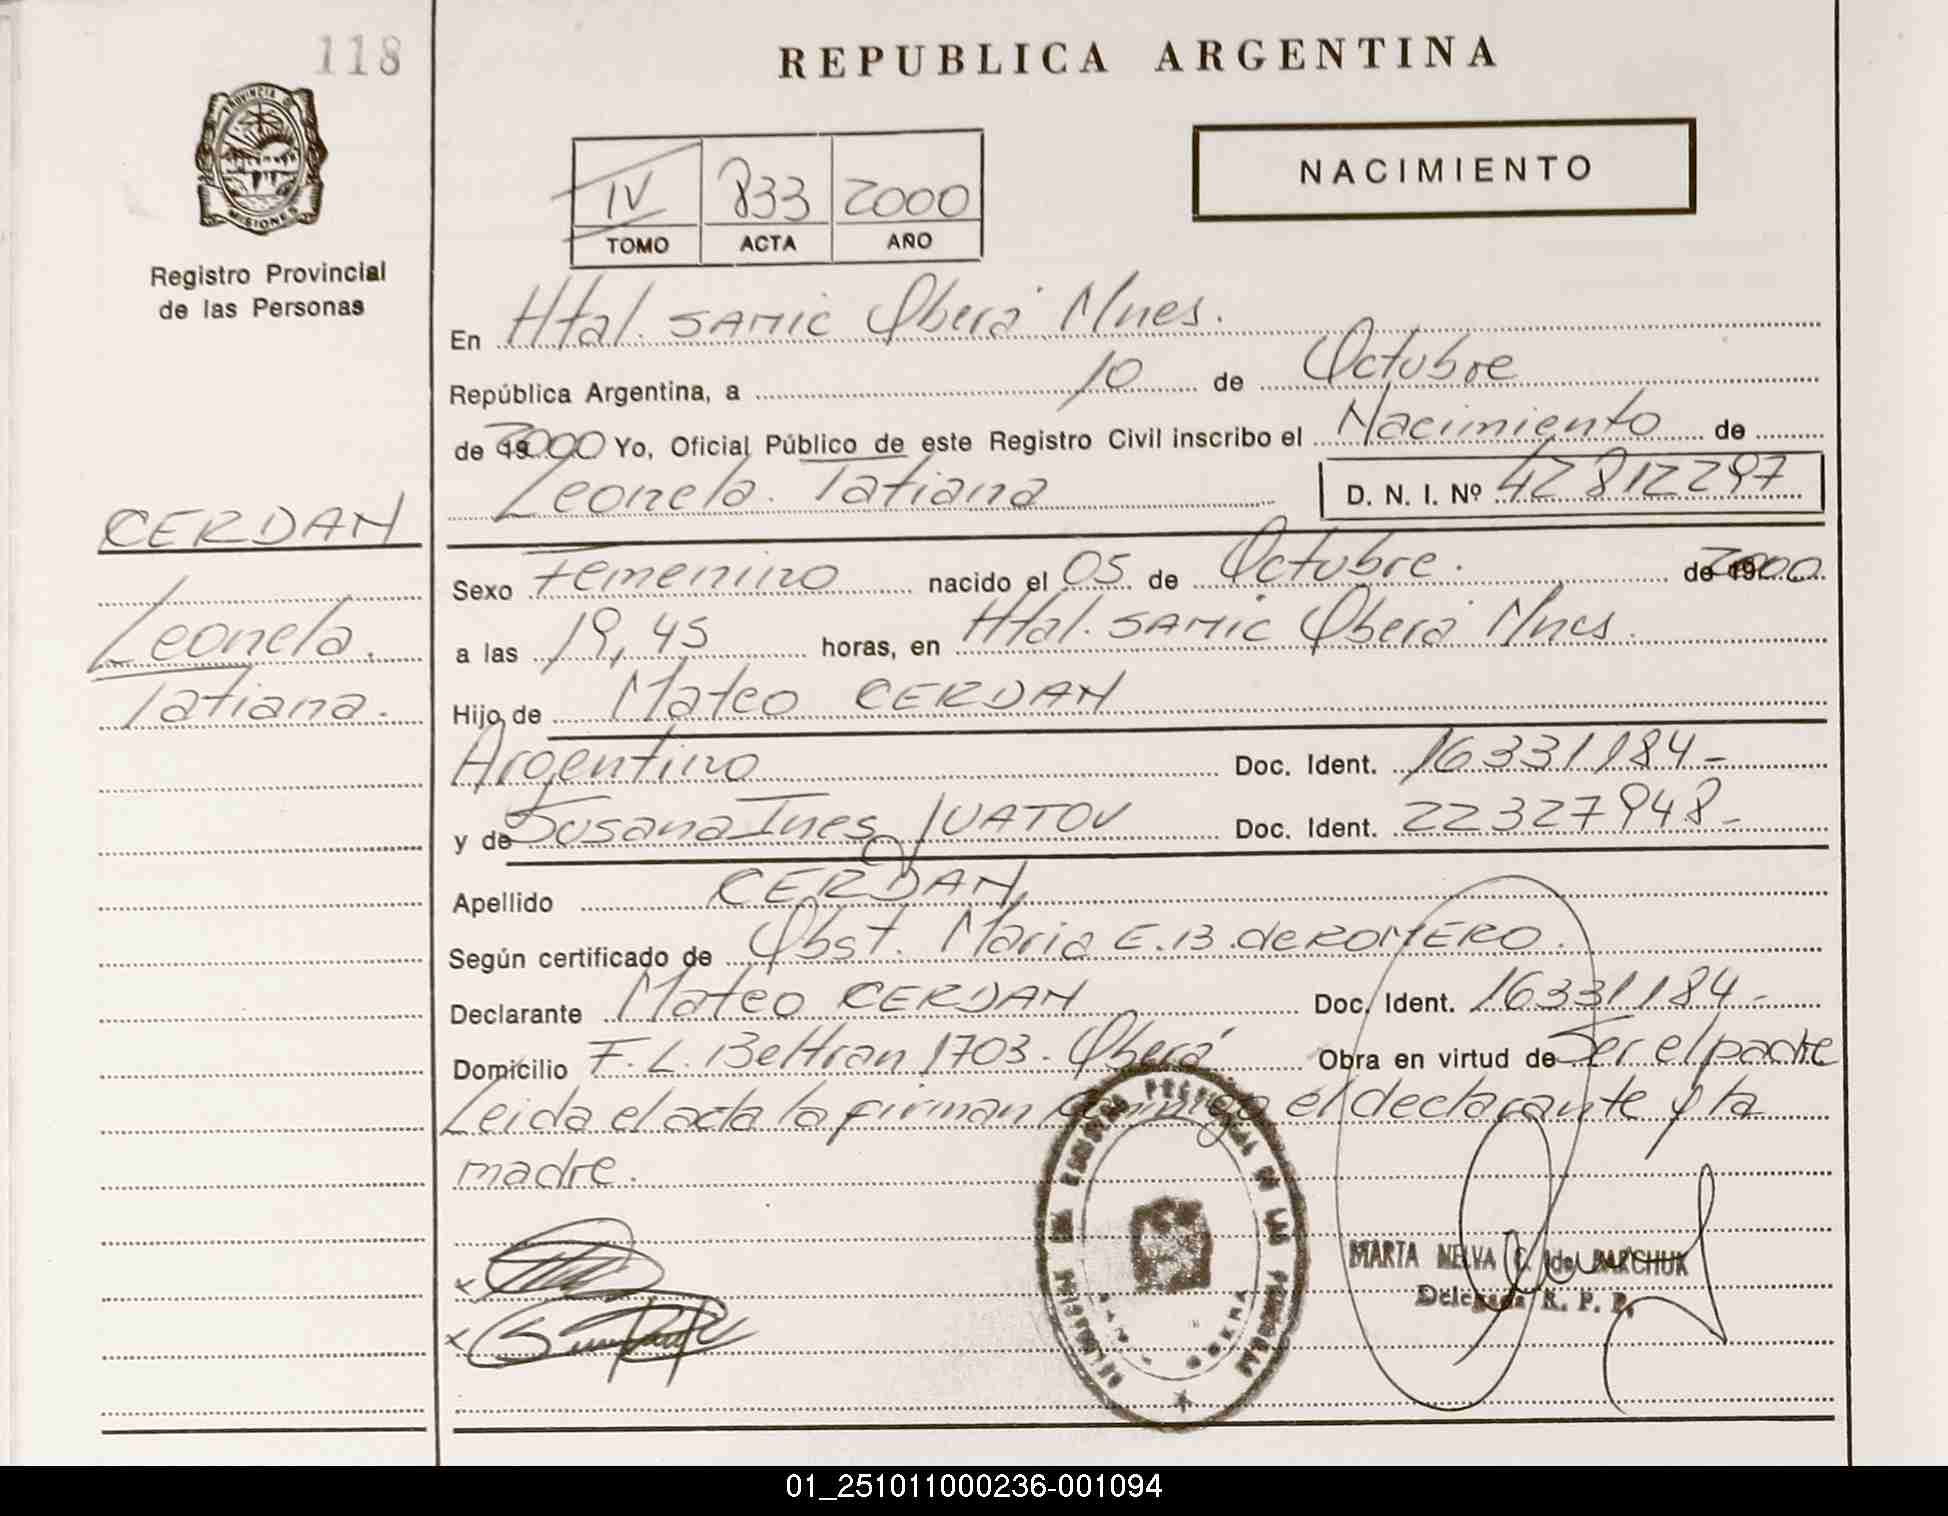 118
REPUBLICA ARGENTINA
PROVINCIA DE
MISIONES
Registro Provincial
de las Personas
IV 833 2000
TOMO ACTA AÑO
NACIMIENTO
En Htal. SAMIC Oberá Mnes.
República Argentina, a 10 de Octubre
de 2000 Yo, Oficial Público de este Registro Civil inscribo el Nacimiento de
Leonela Tatiana D. N. I. Nº 42812297
CERDAN
Leonela.
Tatiana.
Sexo Femenino nacido el 05 de Octubre. de 2000
a las 19,45 horas, en Htal. SAMIC Oberá Mnes.
Hijo de Mateo CERDAN
Argentino Doc. Ident. 16331184-
y de Susana Ines Doc. Ident. 22327948-
Apellido CERDAN
Según certificado de Obst. Maria E.B. de ROMERO.
Declarante Mateo CERDAN Doc. Ident. 16331184-
Domicilio F. L. Beltran 1703. Oberá Obra en virtud de Ser el padre
Leida el acta la firman conmigo el declarante y la
madre.
MARTA NELVA C. de
Delegada R. P. P.
01_251011000236-001094